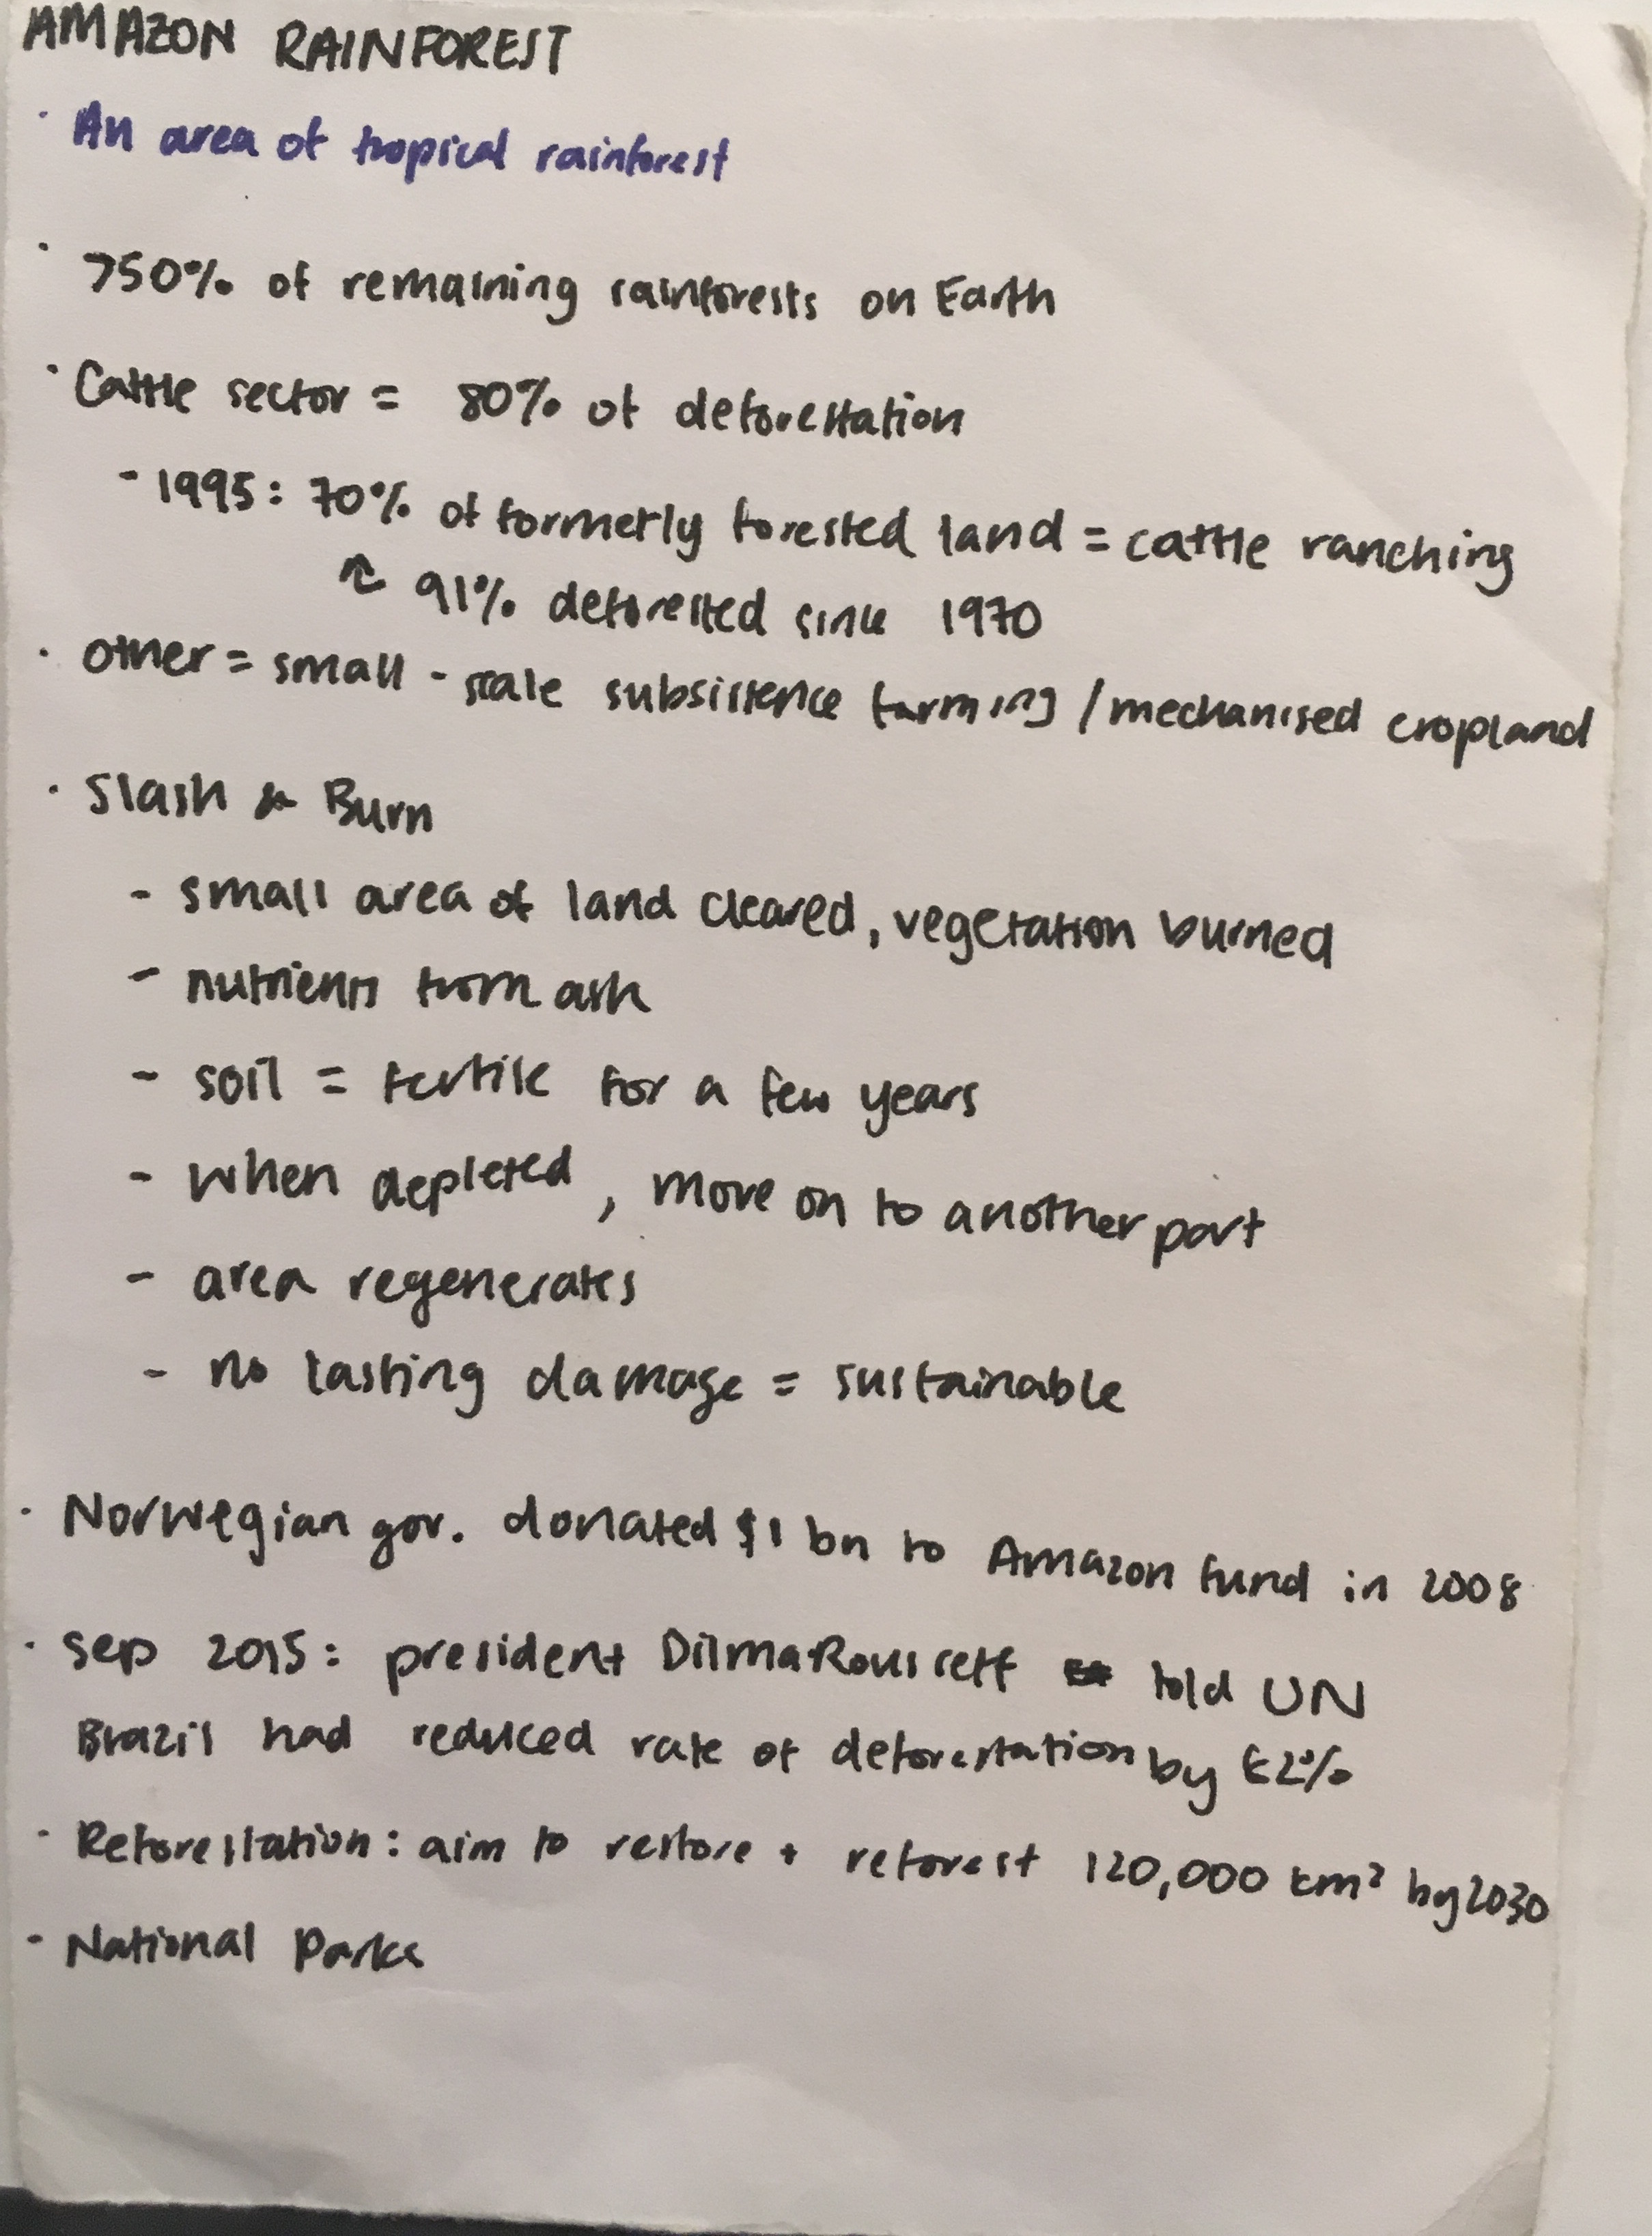 AMAZON RAINFOREST
· An area of tropical rainforest
· >50% of remaining rainforests on Earth
· Cattle sector = 80% of deforestation
- 1995: 70% of formerly forested land = cattle ranching
91% deforested since 1970
· other = small-scale subsistence farming / mechanised cropland
· Slash & Burn
- small area of land cleared, vegetation burned
- nutrients from ash
- soil = fertile for a few years
- when depleted, move on to another part
- area regenerates
- no lasting damage = sustainable
· Norwegian gov. donated $1 bn to Amazon fund in 2008
· Sep 2015: president Dilma Rousseff told UN
Brazil had reduced rate of deforestation by 82%
· Reforestation: aim to restore + reforest 120,000 km² by 2030
· National Parks